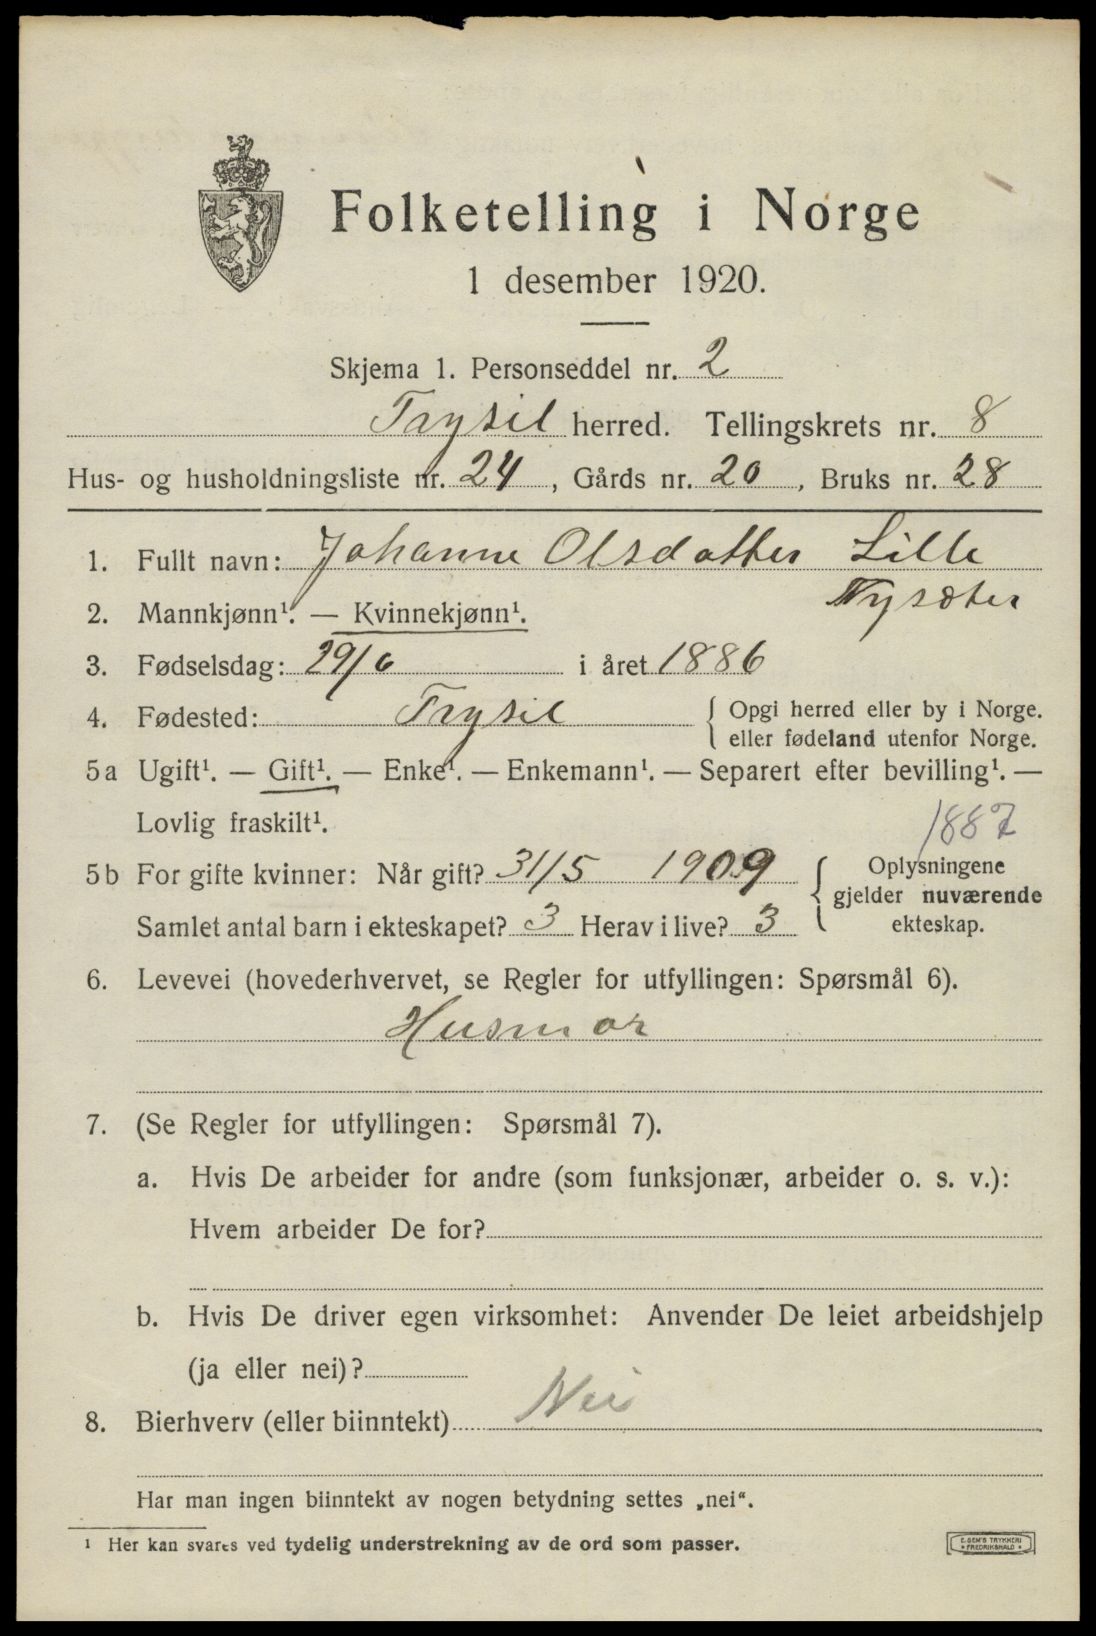 Folketelling i Norge
1 desember 1920.
Skjema 1. Personseddel nr. 2
Trysil herred. Tellingskrets nr. 8
Hus- og husholdningsliste nr. 24, Gårds nr. 20, Bruks nr. 28
1. Fullt navn: Johanne Olsdatter Lille
Nysæter
2. Mannkjønn¹. — Kvinnekjønn¹.
3. Fødselsdag: 29/6 i året 1886
4. Fødested: Trysil { Opgi herred eller by i Norge.
eller fødeland utenfor Norge.
5a Ugift¹. — Gift¹. — Enke¹. — Enkemann¹. — Separert efter bevilling¹. —
Lovlig fraskilt¹.
1887
5b For gifte kvinner: Når gift? 31/5 1909 { Oplysningene
gjelder nuværende
Samlet antal barn i ekteskapet? 3 Herav i live? 3 ekteskap.
6. Levevei (hovederhvervet, se Regler for utfyllingen: Spørsmål 6).
Husmor
7. (Se Regler for utfyllingen: Spørsmål 7).
a. Hvis De arbeider for andre (som funksjonær, arbeider o. s. v.):
Hvem arbeider De for?
b. Hvis De driver egen virksomhet: Anvender De leiet arbeidshjelp
(ja eller nei)?
8. Bierhverv (eller biinntekt) Nei
Har man ingen biinntekt av nogen betydning settes „nei“.
¹ Her kan svares ved tydelig understrekning av de ord som passer.
E. SEM'S TRYKKERI
• FREDRIKSHALD •